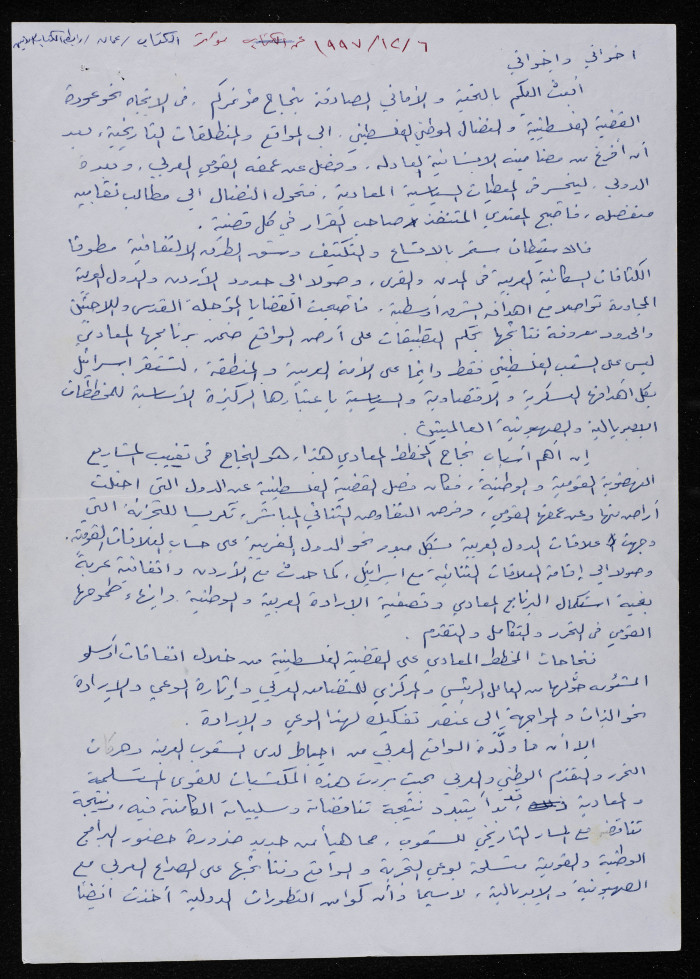 ١٩٩٧/١٢/٦ عن الكتاب مؤتمر الكتاب / عمان / رابطة الكتاب الأردنيين
اخواني واخواتي
أبعث اليكم بالتحية والأماني الصادقة بنجاح مؤتمركم . في الاتجاه نحو عودة
القضية الفلسطينية والنضال الوطني الفلسطيني . الى المواقع والمنطلقات التاريخية ، بعد
أن أفرغ من مضامينه الانسانية العادلة . وفصل عن عمقه القومي العربي ، وبعده
الدولي . لينحسر في المعطيات السياسية المعادية . فتحول النضال الى مطالب نقابيه
منفصله ، فأصبح المعتدي المتنفذ صاحب القرار في كل قضية .
فالاستيطان مستمر بالاتساع والتكثيف وشق الطرق الالتفافية مطوقا
الكثافات السكانية العربية في المدن والقرى ، وصولا الى حدود الأردن والدول العربية
المجاورة تواصلا مع اهدافه الشرق أوسطية . فأصبحت القضايا المؤجلة القدس واللاجئين
والحدود معروفة نتائجها بحكم التطبيقات على أرض الواقع ضمن برنامجها المعادي
ليس على الشعب الفلسطيني فقط وانما على الأمة العربية والمنطقة ، لتستقر اسرائيل
بكل أهدافها العسكرية والاقتصادية والسياسية باعتبارها الركيزة الأساسية للمخططات
الامبريالية والصهيونية العالميتين .
إن اهم أسباب نجاح المخطط المعادي هذا ، هو النجاح في تغييب المشاريع
النهضوية القومية والوطنية ، فكان فصل القضية الفلسطينية عن الدول التي احتلت
أراضي منها وعن عمقها القومي ، وفرض التفاوض الثنائي المباشر ، تكريسا للتجزئة التي
وجهت علاقات الدول العربية بشكل محور نحو الدول الغربية على حساب العلاقات القومية .
وصولا الى إقامة العلاقات الثنائية مع اسرائيل ، كما حدث مع الأردن واتفاقية عربة
بغية استكمال البرنامج المعادي وتصفية الإرادة العربية والوطنية وإنهاء طموحها
القومي في التحرر والتكامل والتقدم .
فنجاحات المخطط المعادي على القضية الفلسطينية من خلال اتفاقات أوسلو
المشئومه حولها من العامل الرئيسي والمركزي للتضامن العربي وإثارة الوعي والإرادة
نحو الذات والمواجهة الى عنصر تفكيك لهذا الوعي والإرادة .
الا أن ما ولّده الواقع العربي من احباط لدى الشعوب العربية وحركات
التحرر والتقدم الوطني والعربي بحيث بررت هذه المكتسبات للقوى المستسلمة
والمعادية ، بدأ يتبدد نتيجة تناقضاته وسلبياته الكامنة فيه ، ونتيجة
تناقضه مع المسار التاريخي للشعوب ، مما هيأ من جديد ضرورة حضور البرامج
الوطنية والقومية متسلحة بوعي التجربة والواقع ونتائجها على الصراع العربي مع
الصهيونية والإمبريالية ، لاسيما وأن كوامن التطورات الدولية أخذت أيضا